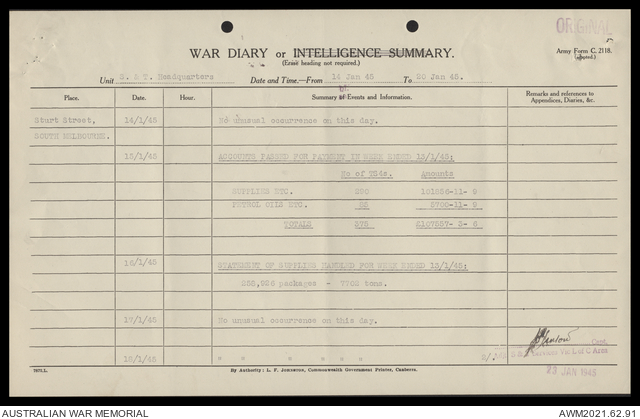 ORIGINAL
WAR DIARY or INTELLIGENCE SUMMARY.
(Erase heading not required.)
Army Form C. 2118.
(adapted.)
Unit S. & T. Headquarters Date and Time.—From 14 Jan 45 To 20 Jan 45.
Place. Date. Hour. Summary of Events and Information. Remarks and references to Appendices, Diaries, &c.
Sturt Street, 14/1/45 No unusual occurrence on this day.
SOUTH MELBOURNE.
15/1/45 ACCOUNTS PASSED FOR PAYMENT IN WEEK ENDED 13/1/45:
No of TS4s. Amounts
SUPPLIES ETC. 101856-11- 9
PETROL OILS ETC. 5700-11- 9
TOTALS 378 £107557- 3- 6
16/1/45 STATEMENT OF SUPPLIES HANDLED FOR WEEK ENDED 13/1/45:
255,926 packages - 7702 tons.
17/1/45 No unusual occurrence on this day.
18/1/45 " " " " " "
23 JAN 1945
7873.L. By Authority: L. F. Johnston, Commonwealth Government Printer, Canberra.
AUSTRALIAN WAR MEMORIAL AWM2021.62.91